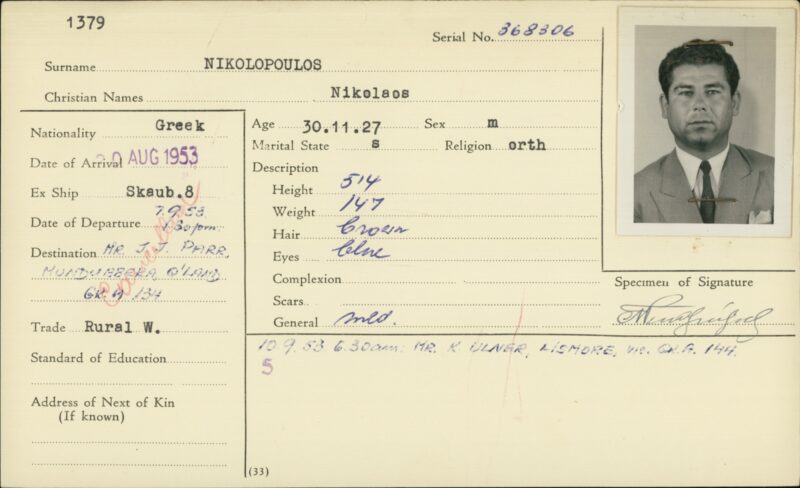 1379
Serial No. 368306
Surname NIKOLOPOULOS
Christian Names Nikolaos
Nationality Greek
Date of Arrival 20 AUG 1953
Ex Ship Skaub.8
7.9.53
Date of Departure 1.30pm.
Destination MR J.J. PARR,
MUNDUBBERA Q'LAND
GR.A 134
Cancelled
Trade Rural W.
Standard of Education
Address of Next of Kin
(If known)
Age 30.11.27 Sex m
Marital State s Religion orth
Description
Height 514
Weight 147
Hair brown
Eyes blue
Complexion
Scars
General med.
Specimen of Signature
10 9.53 6.30am: MR. K. ULNER, LISMORE, VIC. GR.A. 144.
5
(33)